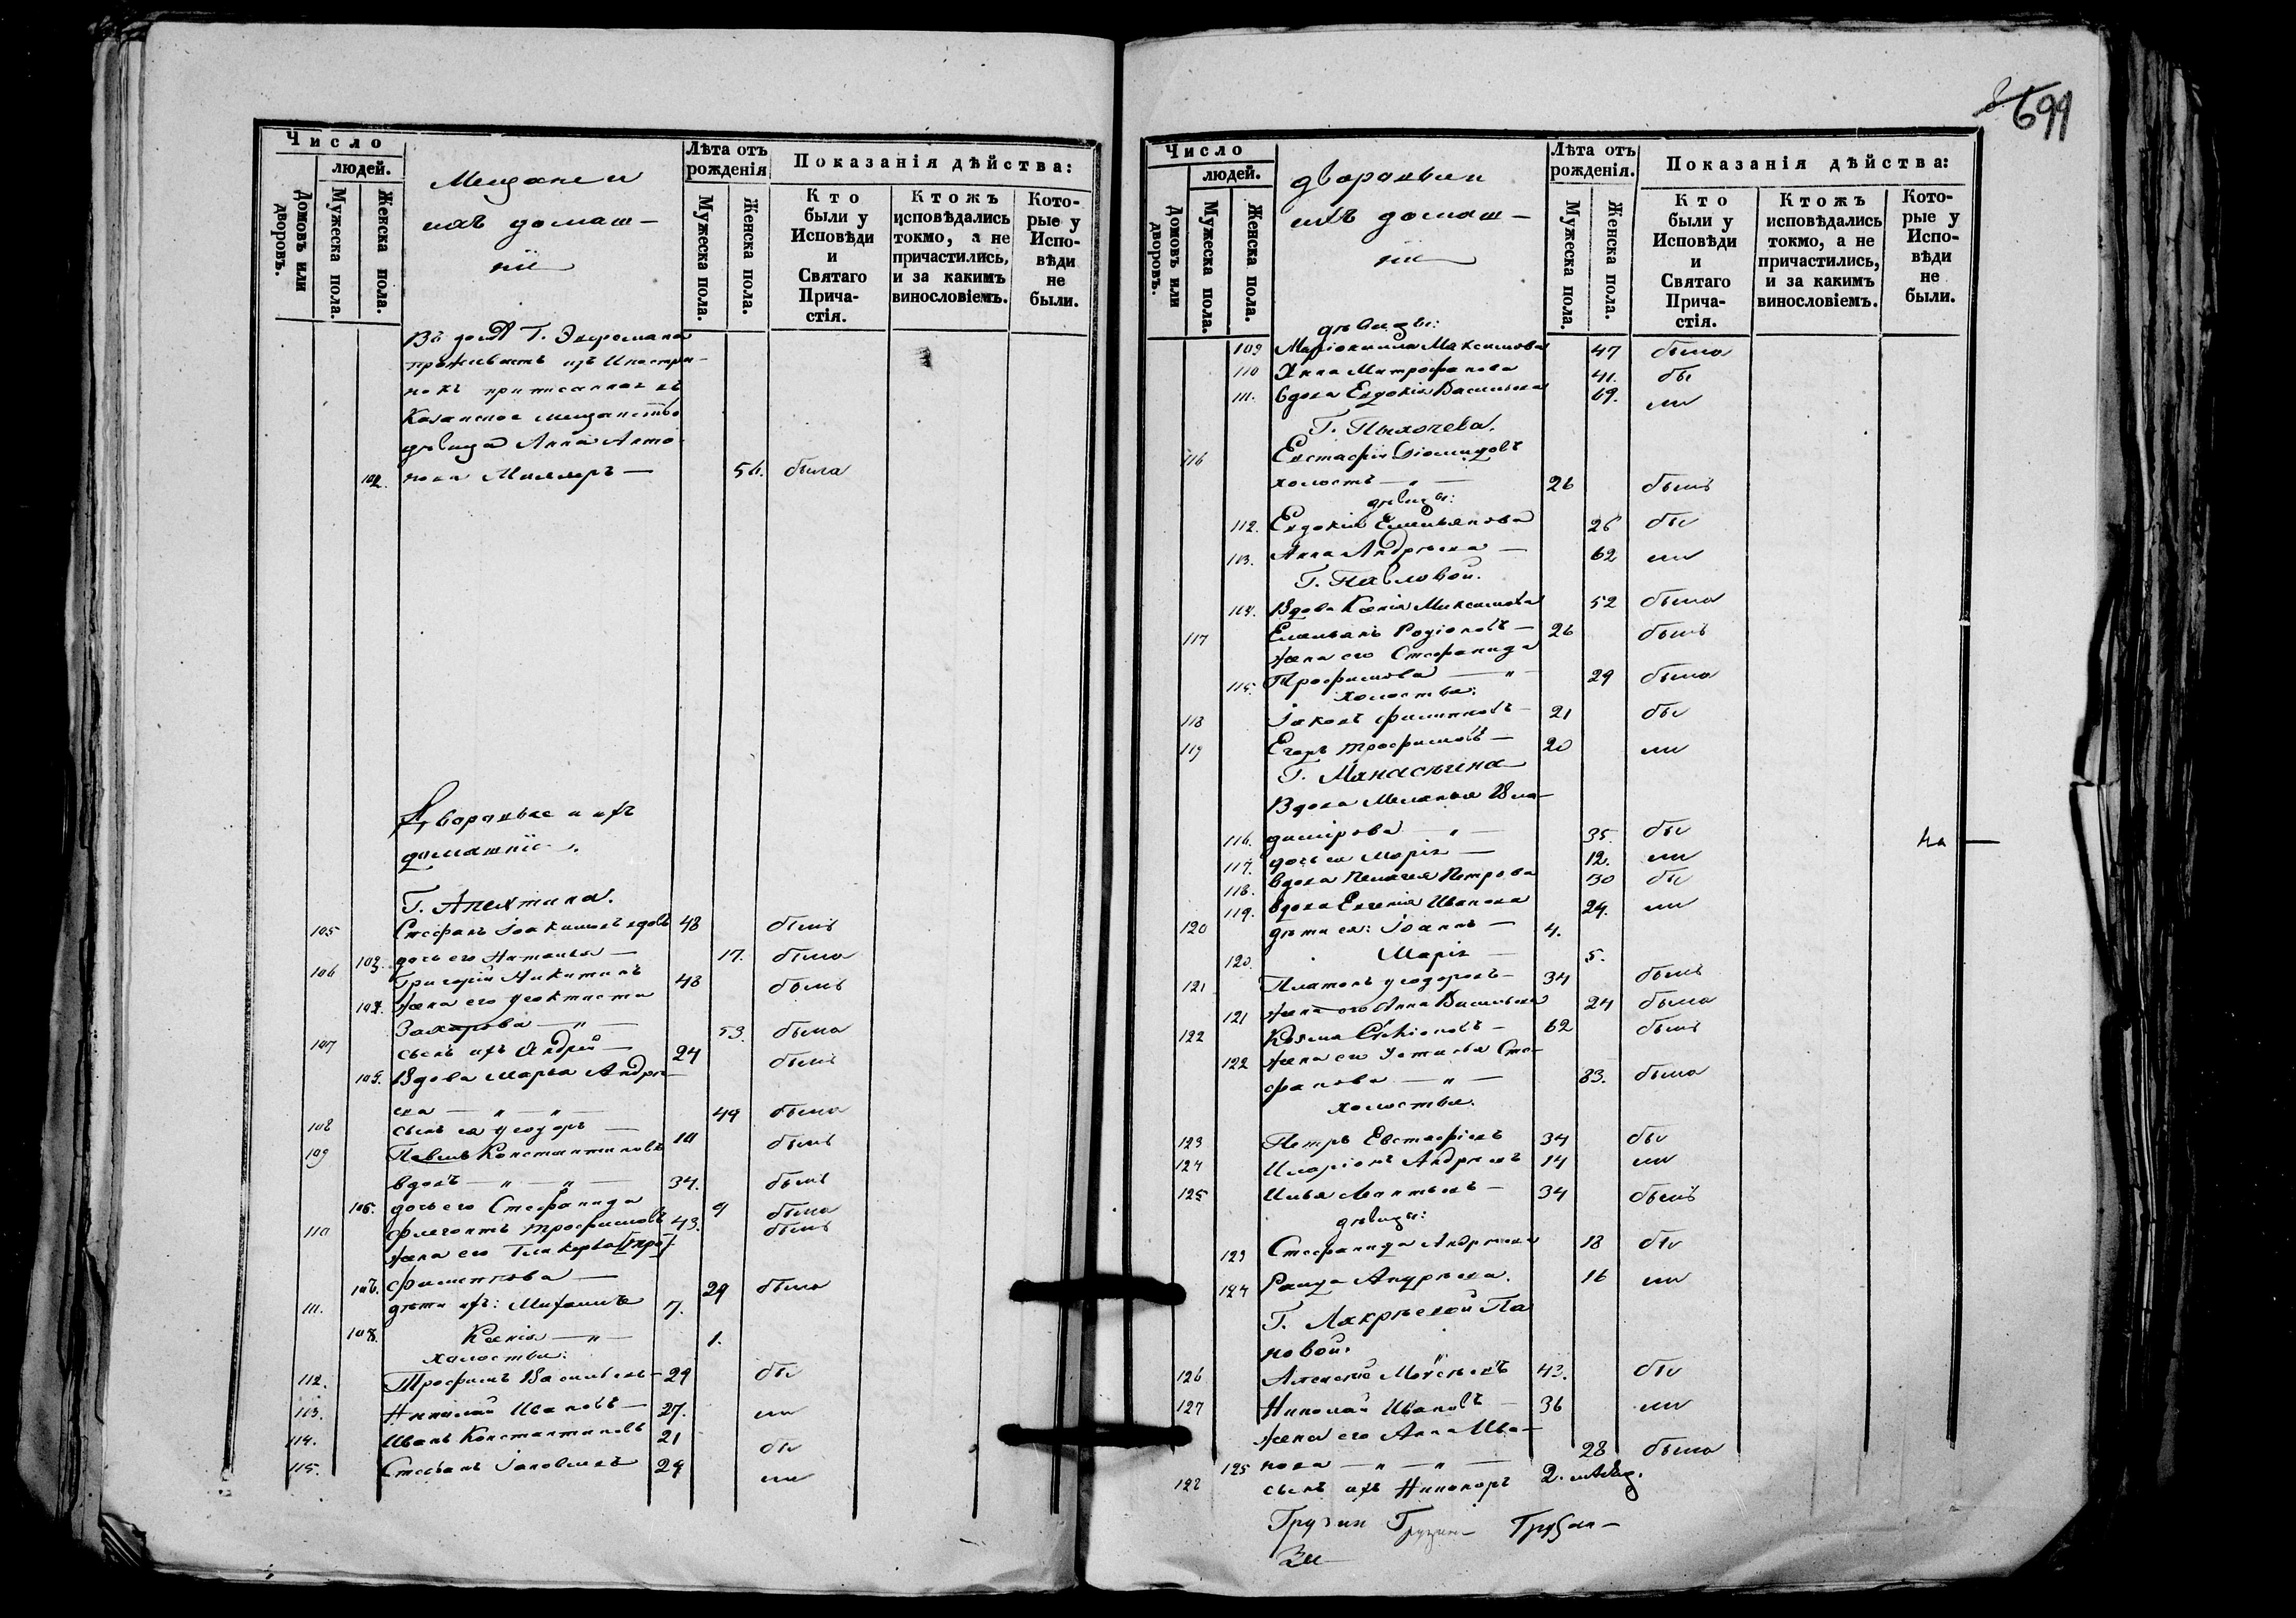 Число
людей.
Домовъ или дворовъ.
Мужеска пола.
Женска пола.
Мещане и
ихъ домаш-
ніе
Лѣта отъ рожденія
Мужеска пола.
Женска пола.
Показанія дѣйства:
Кто были у Исповѣди и Святаго Прича-стія.
Ктожъ исповѣдались токмо, а не причастились, и за какимъ винословіемъ.
Кото-рые у Испо-вѣди не были.
Въ домѣ Г.
проживаетъ изъ Иностра-
нокъ приписанная въ
Казанское мещанство
дѣвица Анна Анто-
102. нова Миллеръ — 56. была
Дворяные и ихъ
домашніе.
Г. Апехтина.
105 Стефанъ Іоакимовъ вдовъ 48 былъ
103. дочь его Наталья — 17. была
106 Григорій Никитинъ 48 былъ
104. жена его Ѳеоктиста
Захарова — " — 53. была
107 сынъ ихъ Андрей — 24 былъ
105. Вдова Марья Андрѣ-
ева — " — " — 49 была
108 сынъ ея Ѳеодоръ — 10 былъ
109 Павелъ Константиновъ
вдовъ — " — " — 34. былъ
106. дочь его Стефанида 9 была
110 Флегонтъ Трофимовъ 43. былъ
жена его Гликерья
107. Филиппова — 29 была
111. дѣти ихъ: Михаилъ 7.
108. Ксенія — " — 1.
холостые:
112. Трофимъ Васильевъ — 29 бы
113. Николай Ивановъ — 27. ли
114. Иванъ Константиновъ 21 бы
115. Степанъ Іаковлевъ 29 ли
699
Число
людей.
Домовъ или дворовъ.
Мужеска пола.
Женска пола.
дворяные и
ихъ домаш-
ніе
Лѣта отъ рожденія.
Мужеска пола.
Женска пола.
Показанія дѣйства:
Кто были у Исповѣди и Святаго Прича-стія.
Ктожъ исповѣдались токмо, а не причастились, и за какимъ винословіемъ.
Кото-рые у Испо-вѣди не были.
дѣвицы:
109 Маріамна Максимова 47 была
110 Анна Митрофанова 41. бы
111. вдова Евдокія Васильева 69. ли
Г. Пыхочева.
116 Евстафій Діомидовъ
холостъ — " — 26 былъ
дѣвицы:
112. Евдокія Емельянова 26 бы
113. Анна Андрѣева — 62 ли
Г. Павловой.
114. Вдова Ксенія Максимова 52 была
117 Емельянъ Родіоновъ — 26 былъ
жена его Стефанида
115. Трофимова — " — 29 была
холостые:
118 Іаковъ Филипповъ — 21 бы
119 Егоръ Трофимовъ — 20 ли
Г. Манасѣина
Вдова Меланья Вла-
116. димірова — " — 35. бы
117. дочь ея Марія — 12. ли
118. вдова Пелагея Петрова 30 бы
119. вдова Евгенія Иванова 24. ли
120 дѣти ея: Іоаннъ — 4.
120. Марія — 5.
121 Платонъ Ѳеодоровъ — 34 былъ
121 жена его Анна Васильева 24 была
122 Козма — 62 былъ
122 жена его Устинья Сте-
фанова — " — 83. была
холостые.
123 Петръ Евстафіевъ 34 бы
124 Иларіонъ Андреевъ 14 ли
125 Илья — 34 былъ
дѣвицы:
123 Стефанида Андрѣева 18 бы
124 Раида Андрѣева. 16 ли
Г. Лакрѣевой Па
новой.
126 Алексѣй Моѵсѣевъ 43. бы
127 Николай Ивановъ — 36 ли
жена его Анна Ива-
125 нова — " — " — 28 была
128 сынъ ихъ Никаноръ 2.
Грузин Грузин-